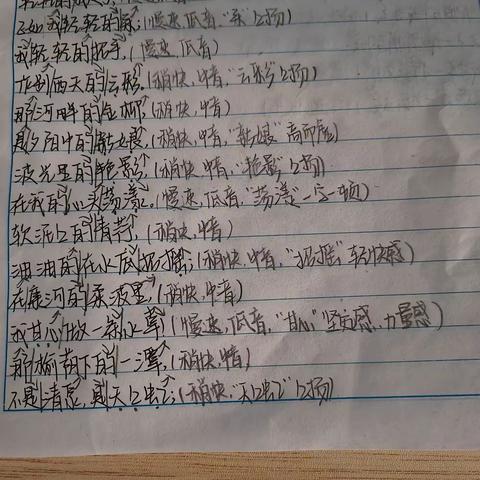 正如我轻轻的来，(慢速，低音，“来”上扬)
我轻轻的招手，(慢速，低音)
作别西天的云彩。(稍快，中音，“云彩”上扬)
那河畔的金柳，(稍快，中音)
是夕阳中的新娘，(稍快，中音，“新娘”高而虚)
波光里的艳影，(稍快，中音，“艳影”上扬)
在我的心头荡漾。(慢速，低音，“荡漾”一字一顿)
软泥上的青荇，(稍快，中音)
油油的在水底招摇；(稍快，中音，“招摇”轻快感)
在康河的柔波里，(稍快，中音)
我甘心做一条水草！(慢速，低音，“甘心”坚定感、力量感)
那榆荫下的一潭，(稍快，中音)
不是清泉，是天上虹；(稍快，“天上虹”上扬)